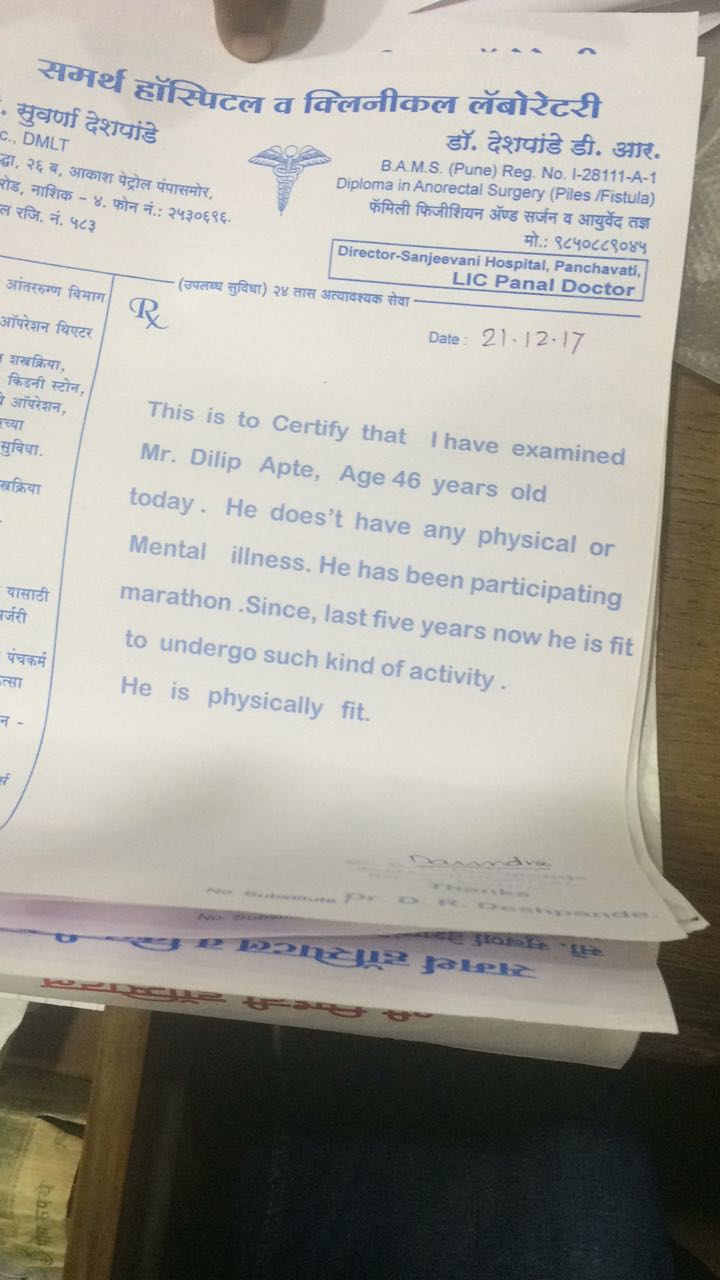 समर्थ हॉस्पिटल व क्लिनीकल लॅबोरेटरी
सुवर्णा देशपांडे
DMLT
२६ ब, आकाश पेट्रोल पंपासमोर,
रोड, नाशिक - ४. फोन नं.: २५३०६९६.
रजि. नं. ५८३
डॉ. देशपांडे डी. आर.
B.A.M.S. (Pune) Reg. No. I-28111-A-1
Diploma in Anorectal Surgery (Piles /Fistula)
फॅमिली फिजीशियन अॅण्ड सर्जन व आयुर्वेद तज्ञ
मो.: ९८५०८८९०४५
Director-Sanjeevani Hospital, Panchavati,
LIC Panal Doctor
(उपलब्ध सुविधा) २४ तास अत्यावश्यक सेवा
आंतररुग्ण विभाग
ऑपरेशन थिएटर
शस्त्रक्रिया,
किडनी स्टोन,
ऑपरेशन,
सुविधा.
यासाठी
पंचकर्म
Rx
Date : 21.12.17
This is to Certify that I have examined
Mr. Dilip Apte, Age 46 years old
today . He does't have any physical or
Mental illness. He has been participating
marathon .Since, last five years now he is fit
to undergo such kind of activity .
He is physically fit.
Thanks
No Substitute Dr. D. R. Deshpande.
No
सौ. सुवर्णा
समर्थ हॉस्पिटल व